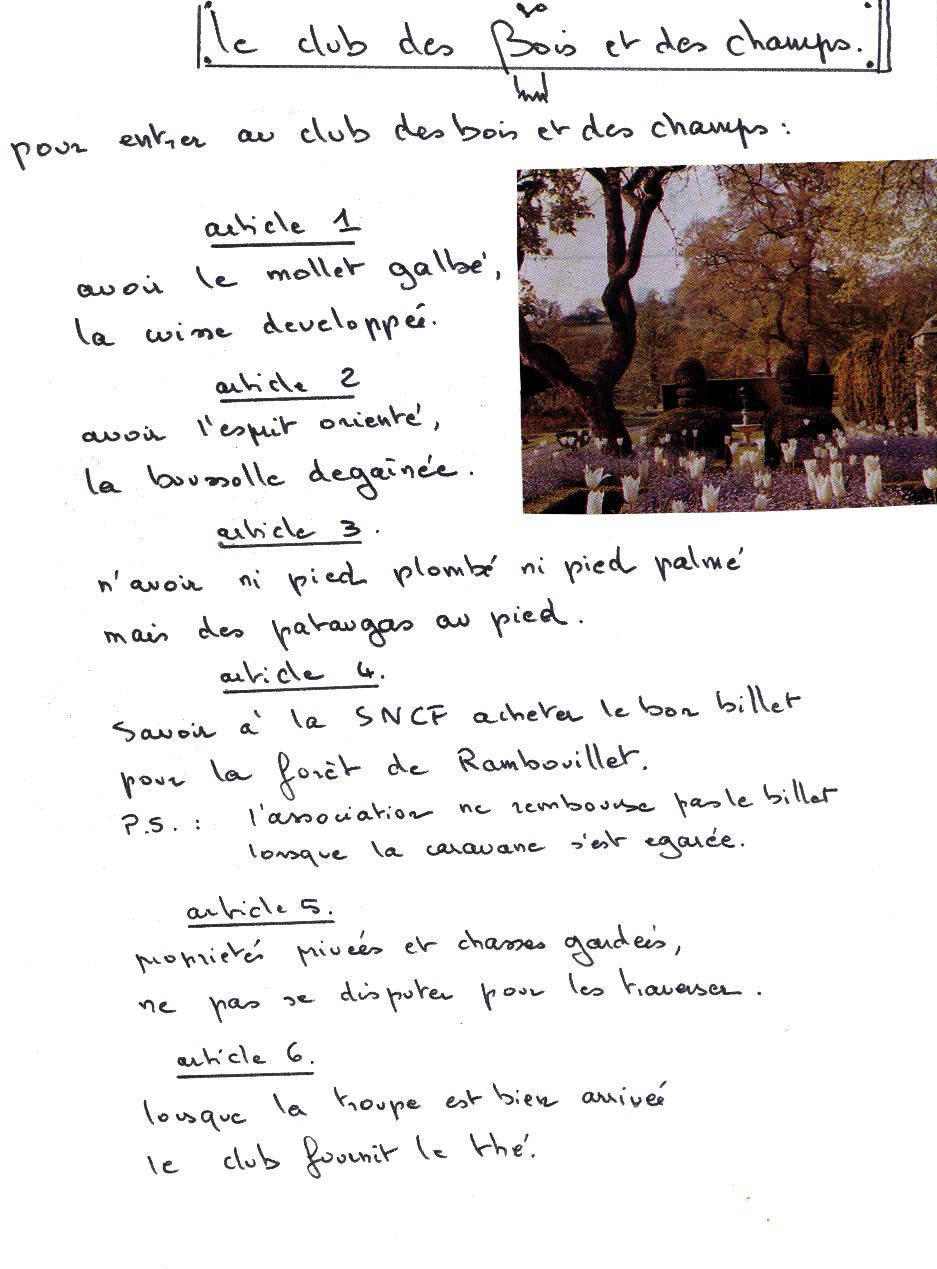 le club des Bois et des champs.
pour entrer au club des bois et des champs :
article 1
avoir le mollet galbé,
la cuisse developpée.
article 2
avoir l'esprit orienté,
la boussolle degaînée.
article 3.
n'avoir ni pied plombé ni pied palmé
mais des pataugas au pied.
article 4.
Savoir à la SNCF acheter le bon billet
pour la forêt de Rambouillet.
P.S. : l'association ne rembourse pas le billet
lorsque la caravane s'est egarée.
article 5.
proprietés privées et chasses gardées,
ne pas se disputer pour les traverser.
article 6.
lorsque la troupe est bien arrivée
le club fournit le thé.